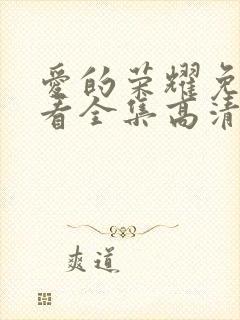 爱的荣耀免
看全集高清
爽道